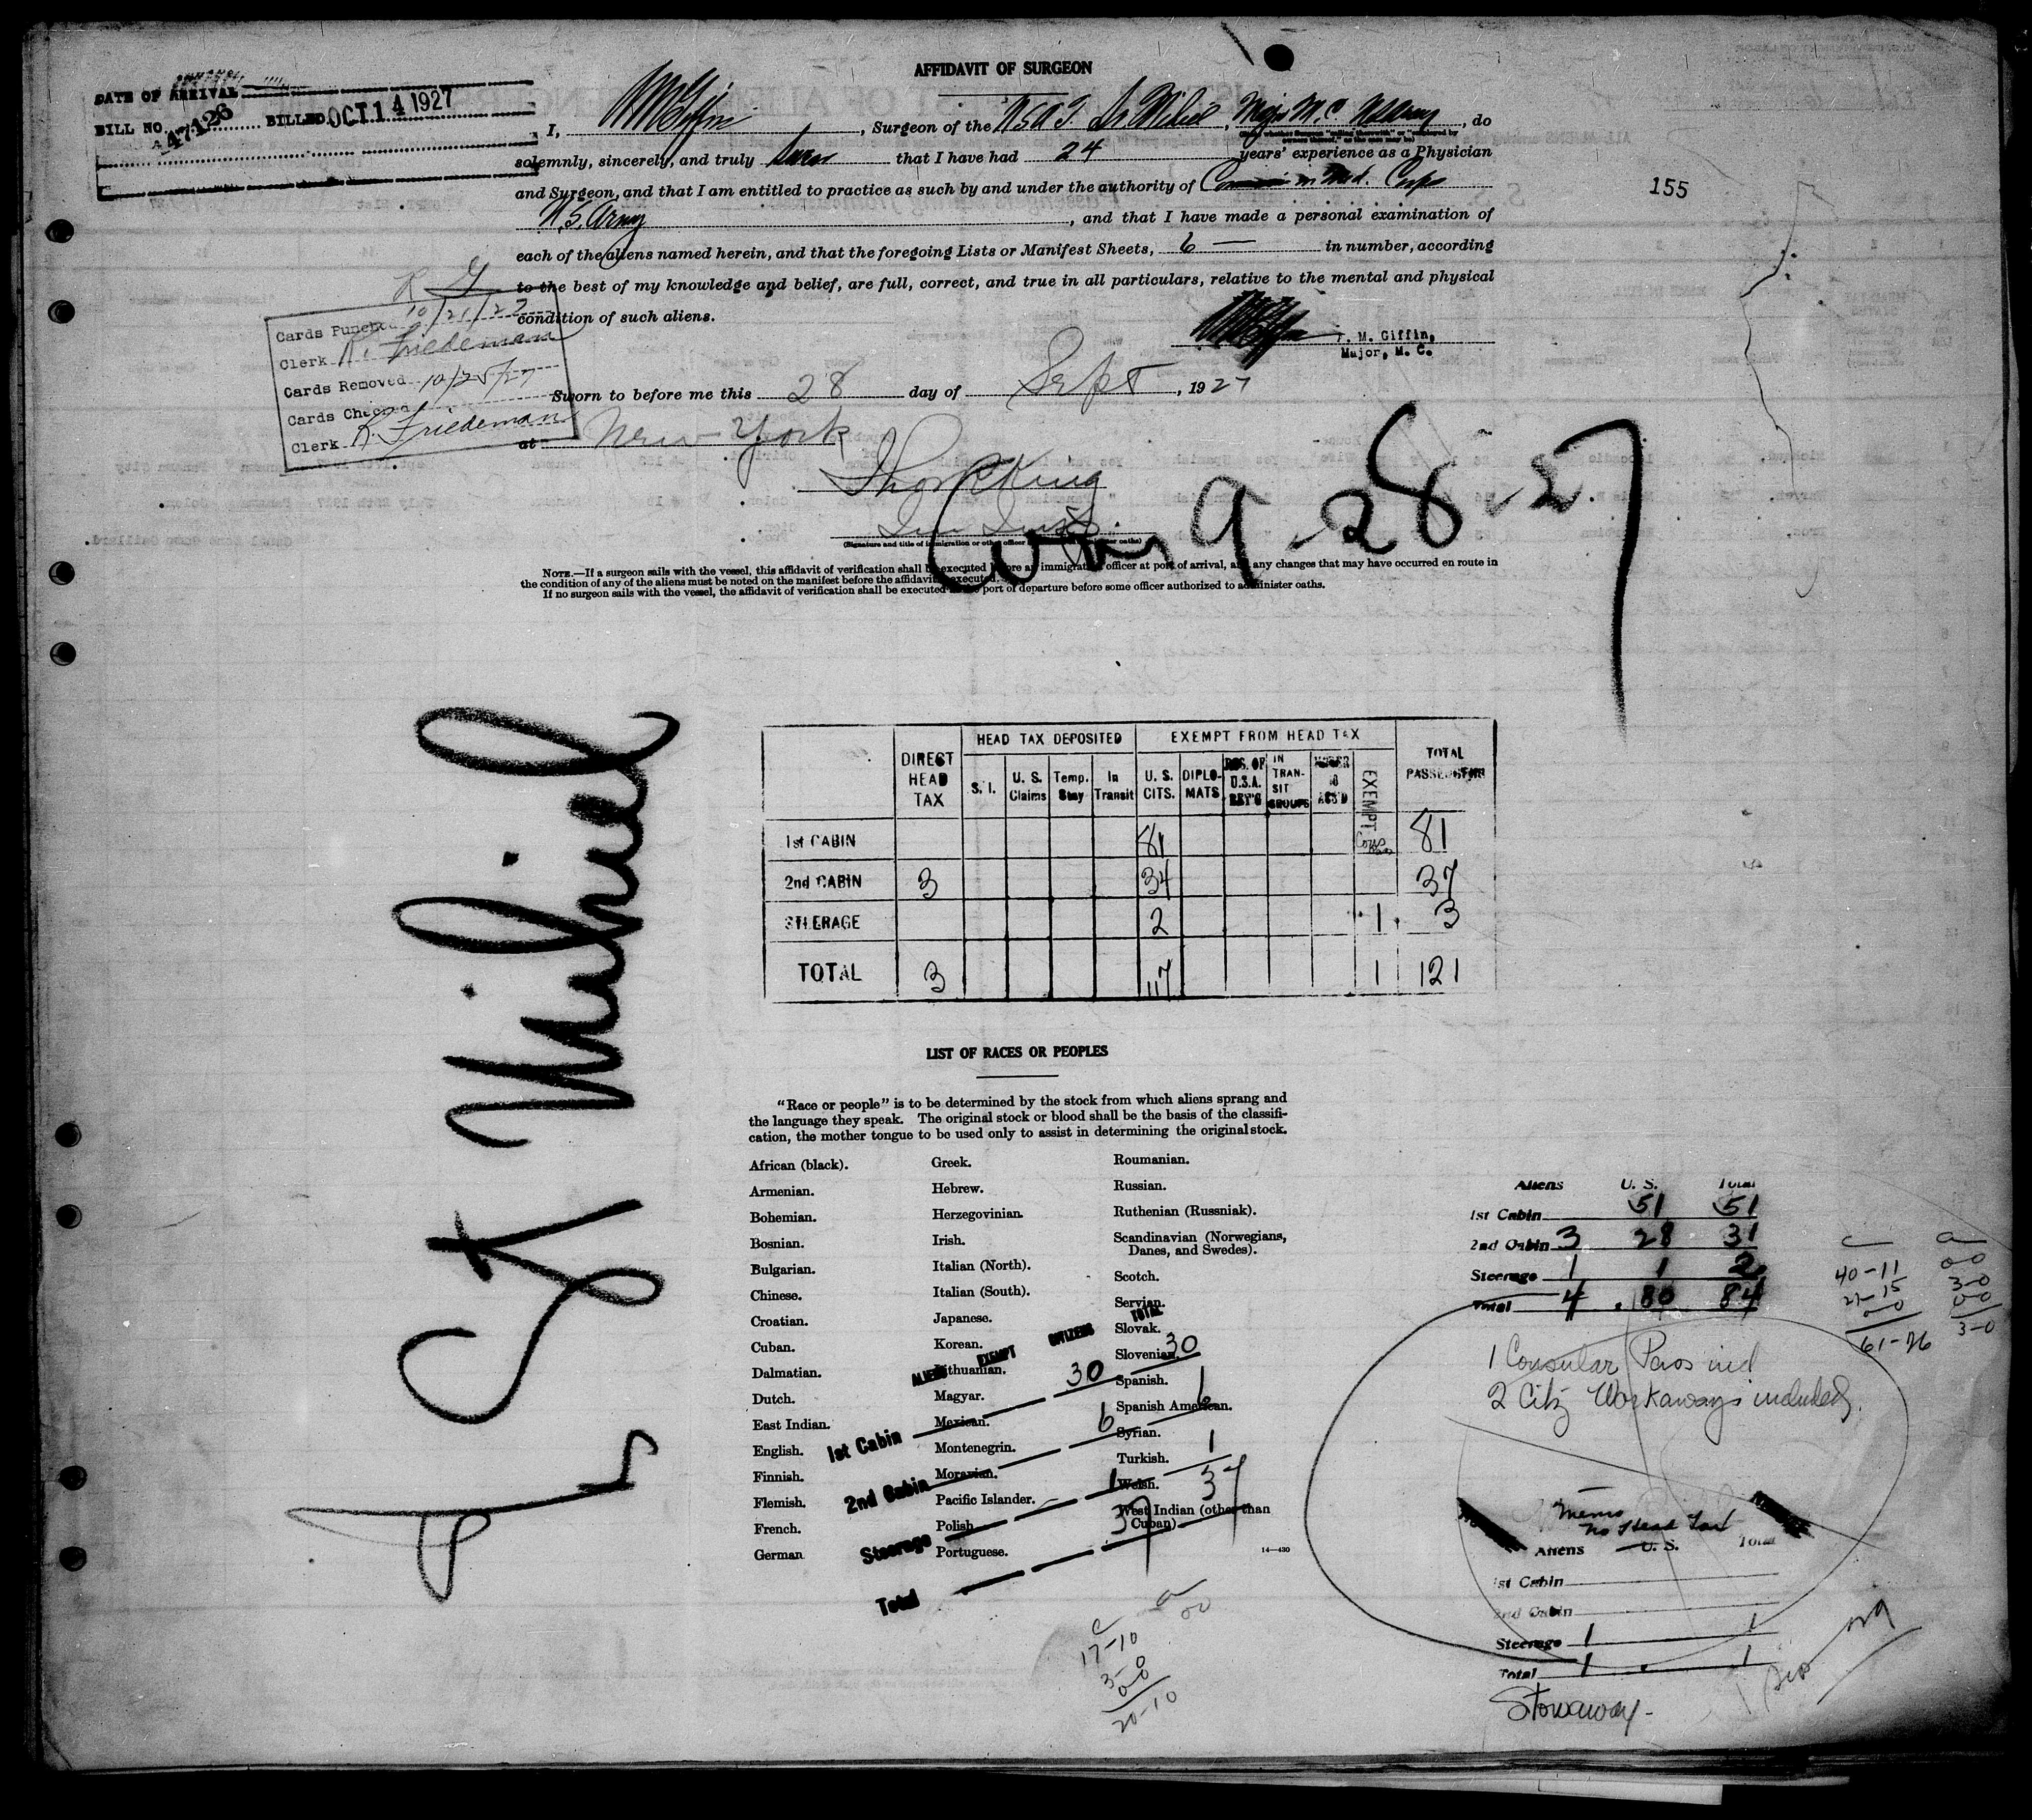 AFFIDAVIT OF SURGEON
DATE OF ARRIVAL
BILL NO. 47126 BILLED OCT 14 1927
I, , Surgeon of the U S A T St Mihiel, Major M. C. US Army, do
(State whether Surgeon "sailing therewith" or "employed by owners thereof," as the case may be)
solemnly, sincerely, and truly swear that I have had 24 years' experience as a Physician
and Surgeon, and that I am entitled to practice as such by and under the authority of Med. Corps
U.S. Army, and that I have made a personal examination of
each of the aliens named herein, and that the foregoing Lists or Manifest Sheets, 6 — in number, according
to the best of my knowledge and belief, are full, correct, and true in all particulars, relative to the mental and physical
condition of such aliens.
155
M. Giffin,
Major, M. C.
Cards Punched 10/21/27
Clerk R. Friedeman
Cards Removed 10/25/27
Cards Checked
Clerk R. Friedeman
Sworn to before me this 28 day of Sept, 1927
at New York
King
(Signature and title of immigration or other officer
9-28-27
NOTE.—If a surgeon sails with the vessel, this affidavit of verification shall be executed before an immigration officer at port of arrival, and any changes that may have occurred en route in
the condition of any of the aliens must be noted on the manifest before the affidavit is executed.
If no surgeon sails with the vessel, the affidavit of verification shall be executed port of departure before some officer authorized to administer oaths.
St Mihiel
DIRECT HEAD TAX HEAD TAX DEPOSITED EXEMPT FROM HEAD TAX TOTAL PASSENGERS
S. I. U. S. Claims Temp. Stay In Transit U. S. CITS. DIPLO-MATS RES. OF U.S.A. RET'G IN TRAN-SIT GROUPS UNDER 16 ACC'D EXEMPT
1st CABIN 81 81
2nd CABIN 3 34 37
STEERAGE 2 1 3
TOTAL 3 117 1 121
LIST OF RACES OR PEOPLES
"Race or people" is to be determined by the stock from which aliens sprang and
the language they speak. The original stock or blood shall be the basis of the classifi-
cation, the mother tongue to be used only to assist in determining the original stock.
African (black).
Armenian.
Bohemian.
Bosnian.
Bulgarian.
Chinese.
Croatian.
Cuban.
Dalmatian.
Dutch.
East Indian.
English.
Finnish.
Flemish.
French.
German
Greek.
Hebrew.
Herzegovinian.
Irish.
Italian (North).
Italian (South).
Japanese.
Korean.
Lithuanian.
Magyar.
Mexican.
Montenegrin.
Moravian.
Pacific Islander.
Polish.
Portuguese.
Roumanian.
Russian.
Ruthenian (Russniak).
Scandinavian (Norwegians,
Danes, and Swedes).
Scotch.
Servian.
Slovak.
Slovenian.
Spanish.
Spanish American.
Syrian.
Turkish.
Welsh.
West Indian (other than
Cuban)
14—430
ALIENS EXEMPT CITIZENS TOTAL
1st Cabin 30 30
2nd Cabin 6 6
Steerage 1 1
Total 37 37
17-10
3-0
0-0
20-10
Aliens U. S. Total
1st Cabin 51 51
2nd Cabin 3 28 31
Steerage 1 1 2
Total 4 80 84
40-11
21-15
0-0
61-26
00
3-0
0-0
3-0
1 Consular Pass incl
2 Citz Workaways included.
Memo
No Head Tax
Aliens U. S. Total
1st Cabin
2nd Cabin
Steerage 1 1
Total 1 1
Stowaway-